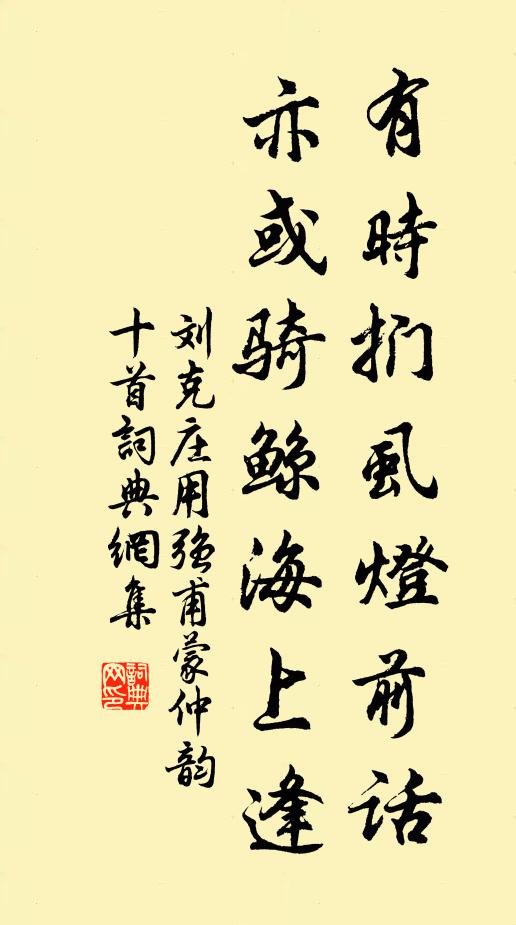 有時捫虱燈前話
亦或骑鲸海上逢
刘克庄用强甫蒙仲韵
十首詞典網集
詞典网印